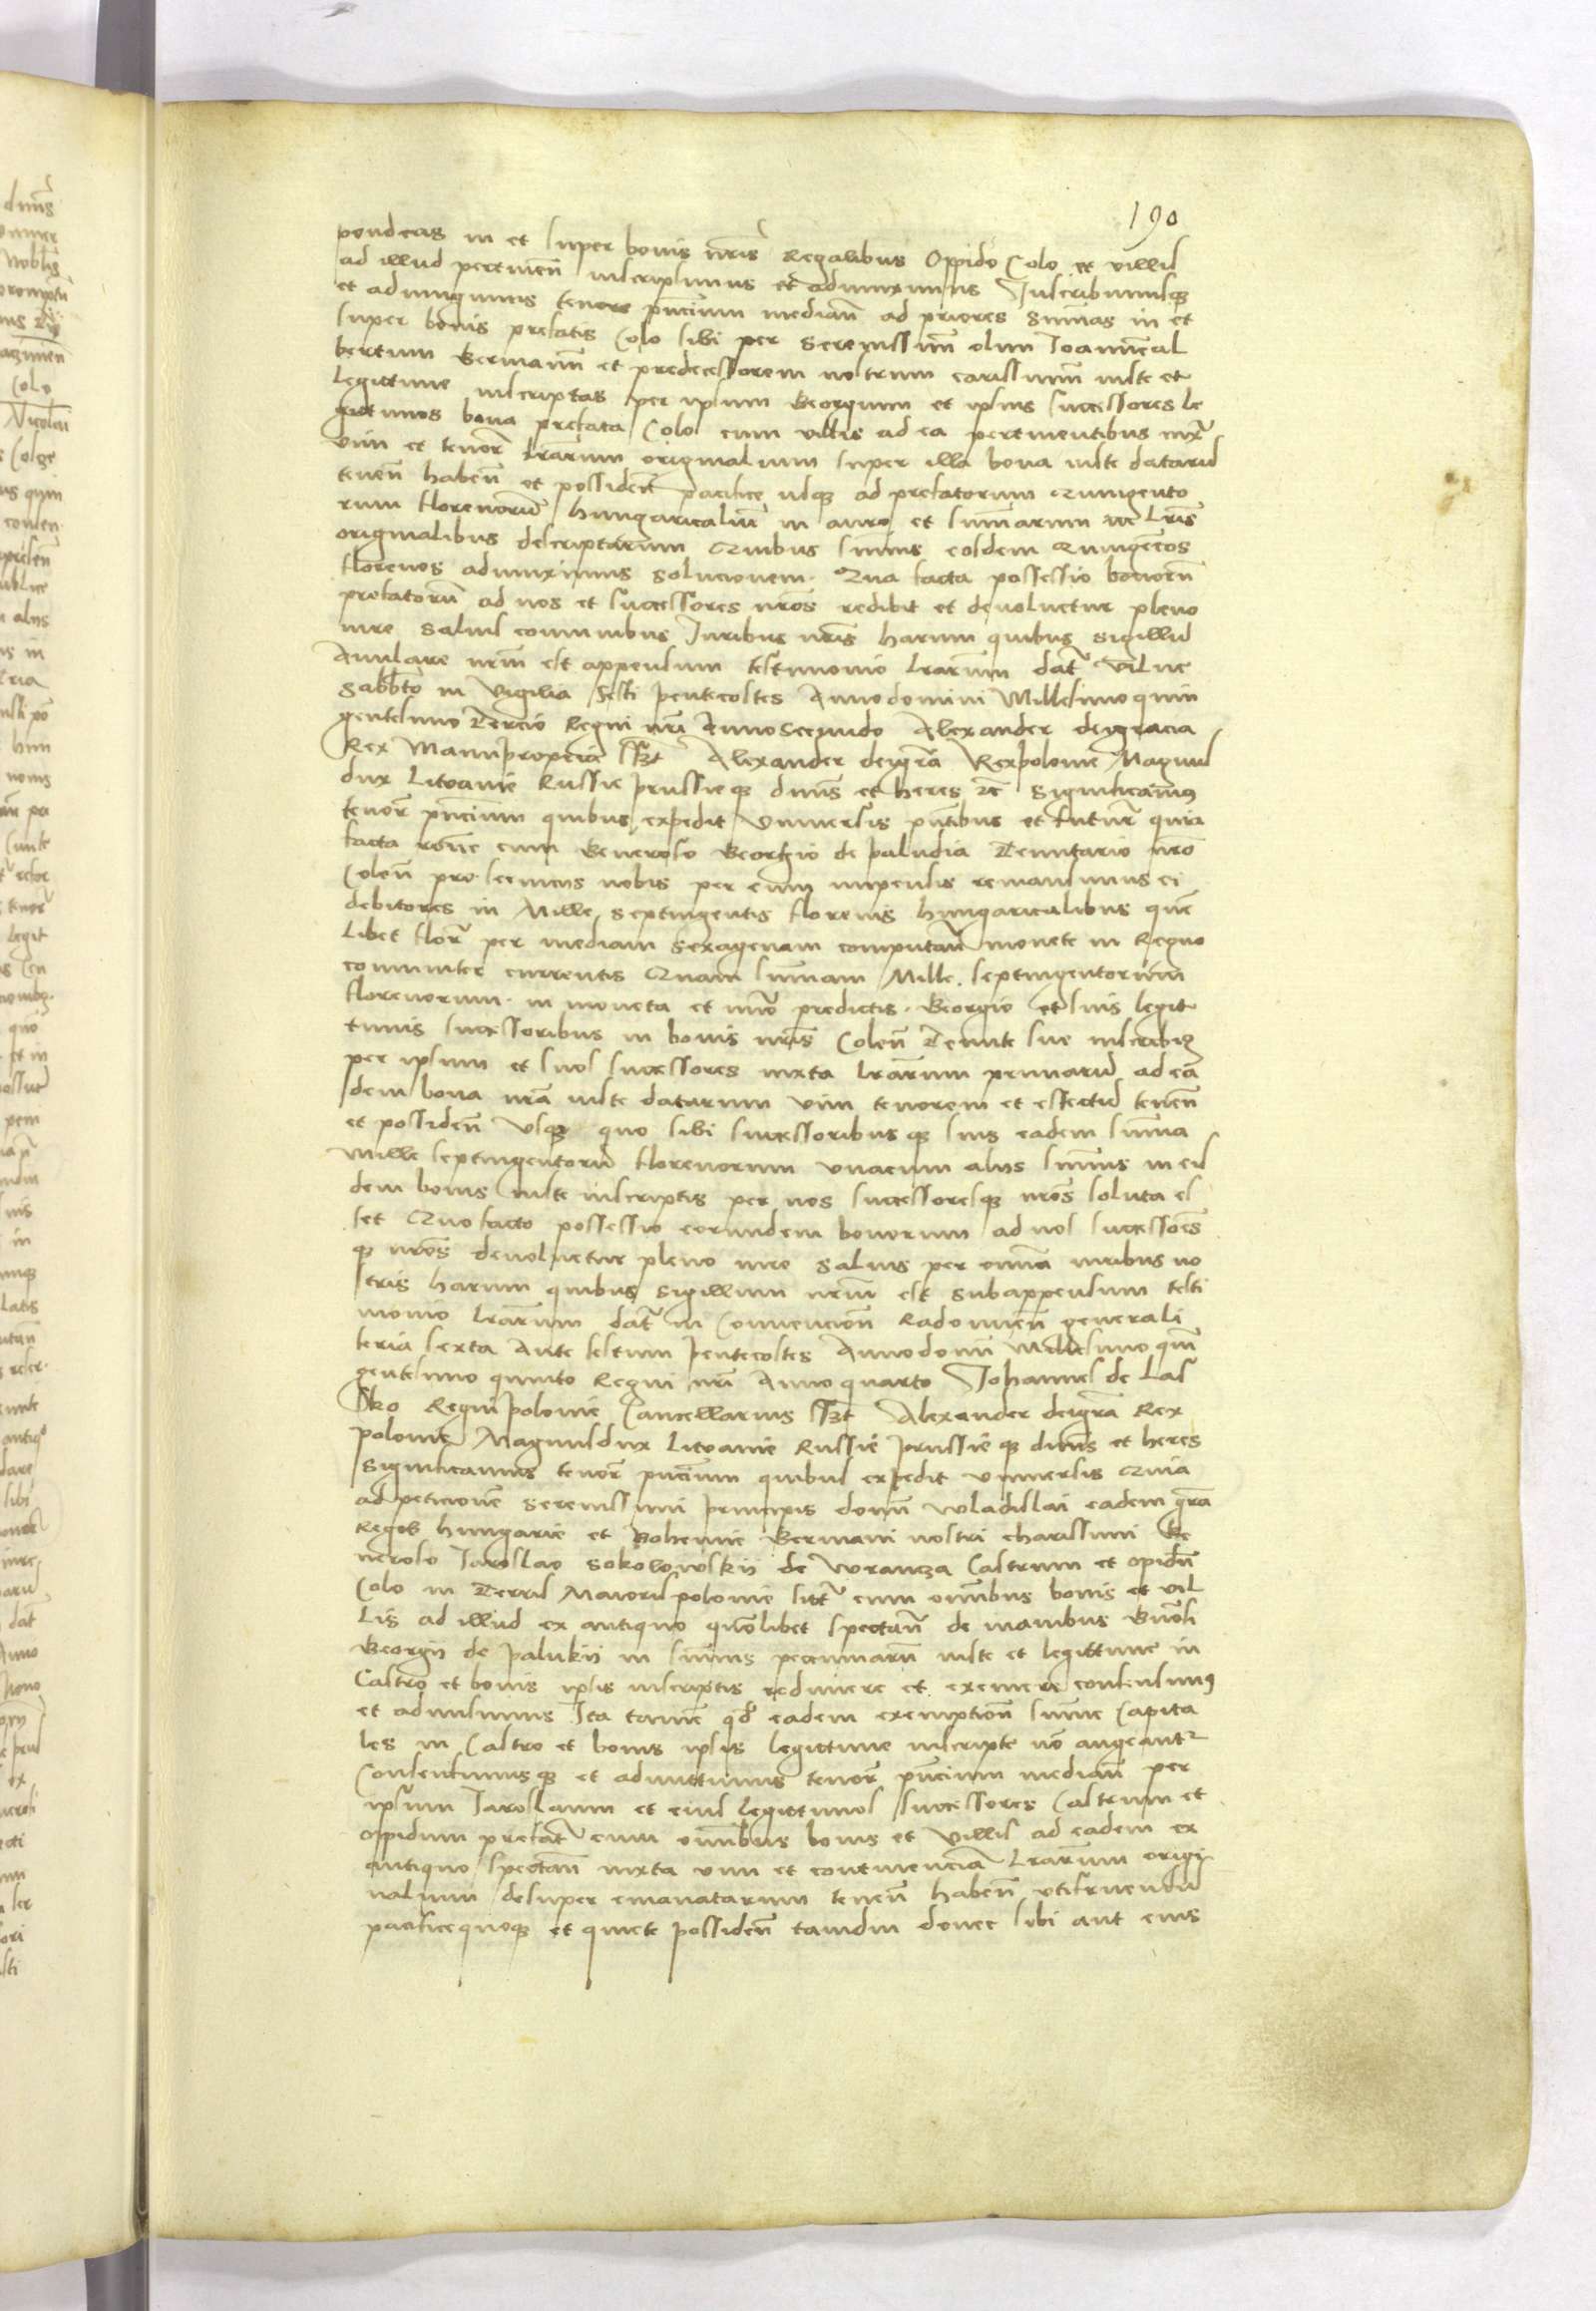 190
ponderis in et super bonis nr̄is Regalibus Oppido Colo et villis
ad illud pertinen̄ inscripsimus et adiunximus Inscribimusq3
et adiungimus tenore pn̄cium median̄ ad priores sum̄as in et
super bonis prefatis Colo sibi per serenissimū olim Joannēal
bertum Germanū et predecessorem nostrum carissimū iuste et
legittime inscriptas per ipsum Georgium et ipsius successores le
gittimos bona prefata Colo cum villis ad ea pertinentibus iuxta
vim et tenorē lr̄arum originalium super illa bona iuste datarū
tenen̄ haben̄ et possiden̄ pacifice usq3 ad prefatorum Quingento
rum florenorū hungaricaliū in auro et sum̄arum in lr̄is
originalibus descriptarum Quibus sum̄is eosdem Quingētos
florenos adiunximus solucionem. Qua facta possessio bonorū
prefatorū ad nos et successores nr̄os redibit et devoluetur pleno
iure saluis com̄unibus Juribus nr̄is harum quibus sigillū
Anulare nr̄m est appensum testimonio lr̄arum dat̄ vilne
Sabbto in vigilia festi pentecostes Anno domini Millesimo quin
gentesimo Tercio Regni nr̄i Anno secundo Alexander dei gracia
Rex Manu propria sszt Alexander dei gr̄a Rex polonie Magnus
dux Litvanie Russie prussieq3 dn̄us et heres zc̄ Significamus
tenorē pn̄cium quibus expedit vniuersis pn̄tibus et futur̄ quia
facta rōne cum Generoso Georgio de paludia Tenutario nr̄o
Colen̄ pro seruicus nobis per eum impensis remansimus ei
debitores in Mille septingentis florenis hungaricalibus quē
libet flor̄ per mediam sexagenam computan̄ monete in Regno
com̄uniter currentis Quam sum̄am Mille septingentorum
florenorum in moneta et nūo predictis Georgio et suis legit
timis successoribus in bonis nr̄is Colen̄ Tenute sue inscribim9
per ipsum et suos successores iuxta lr̄arum primarū ad ea
dem bona nr̄a iuste datarum vim tenorem et effectū tenen̄
et possiden̄ vsq3 quo sibi successoribusq3 suis eadem sum̄a
Mille septingentorū florenorum vnacum alys sum̄is in eis
dem bonis iuste inscriptis per nos successoresq3 nr̄os soluta es
set Quo facto possessio eorundem bonorum ad nos successores
q3 nr̄os devoluetur pleno iure saluis per omnia iuribus no
stris harum quibus sigillum nr̄m est subappensum testi
monio lr̄arum dat̄ in Convencion̄ Radomien̄ generali
feria sexta Ante festum pentecostes Anno domini Millesimo quin
gentesimo quinto Regni nr̄i Anno quarto Johannes de Las
sko Regni polonie Cancellarius sszt Alexander dei gr̄a Rex
polonie Magnus dux Litvanie Russie prussieq3 dn̄us et heres
Significamus tenorē pn̄cium quibus expedit vniuersis Quia
ad peticionē serenissimi principis domi Wladislai eadem gr̄a
Regis hungarie et Bohemie Germani nostri charissimi Ge
neroso Jaroslao Sokolowskij de Wrancza Castrum et opidū
Colo in Terris Maioris polonie sitū cum om̄nibus bonis et vil
lis ad illud ex antiquo quōlibet spectan̄ de manibus Gn̄osi
Georgij de palukij in sum̄is pecuniarū iuste et legittime in
Castro et bonis ipsis inscriptis redimere et eximere consensimus
et admisimus Ita tamē qd̄ eadem exemption̄ sum̄e Capita
les in Castro et bonis ipsis legittime inscripte nō augeantr
Consentimusq3 et admittimus tenorē pn̄cium median̄ per
ipsum Jaroslaum et eius legittimos successores Castrum et
opidum prefat̄ cum om̄ibus bonis et villis ad eadem ex
antiquo spectan̄ iuxta vim et continencia lr̄arum origi
nalium desuper emanatarum tenen̄ haben̄ vtifruendū
pacificequoq3 et quiete possiden̄ tamdiu donec sibi aut eius